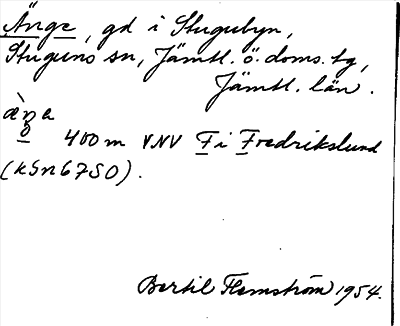 Änge, gd i Stugubyn,
Stuguns sn, Jämtl. ö. doms. tg,
Jämtl. län.
400 m VNV F i Fredrikslund
(kSn67SO).
Bertil Flemström 1954.